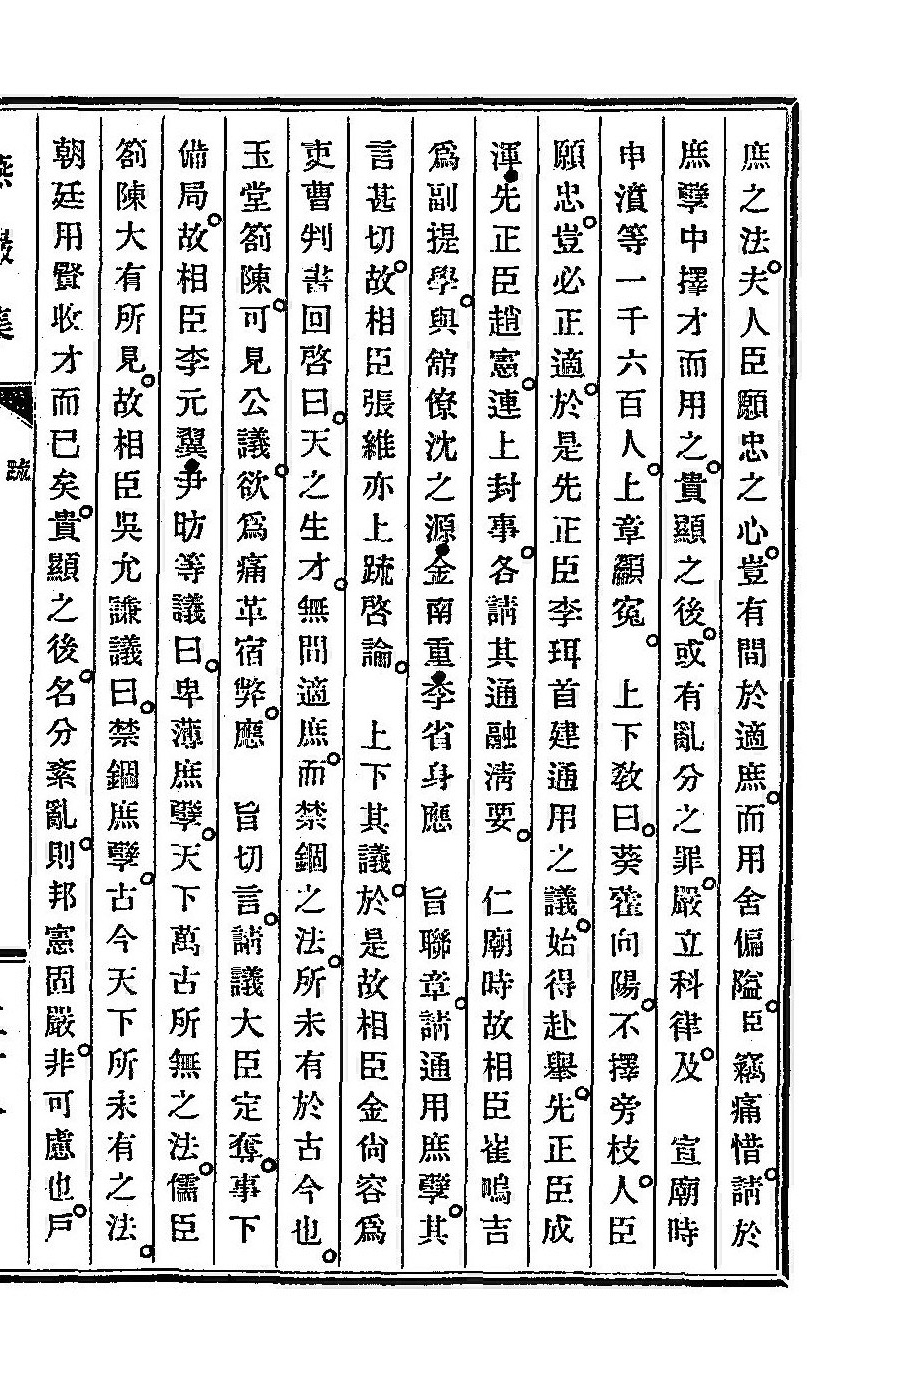 庶之法。夫人臣願忠之心。豈有間於適庶。而用舍偏隘。臣竊痛惜。請於
庶孽中擇才而用之。貴顯之後。或有亂分之罪。嚴立科律。及　宣廟時
申濆等一千六百人。上章龥寃。　上下敎曰。葵藿向陽。不擇旁枝。人臣
願忠。豈必正適。於是先正臣李珥首建通用之議。始得赴舉。先正臣成
渾●先正臣趙憲。連上封事。各請其通融淸要。　仁廟時故相臣崔鳴吉
爲副提學。與舘僚沈之源●金南重●李省身應　旨聯章。請通用庶孽。其
言甚切。故相臣張維亦上疏啓論。　上下其議於。是故相臣金尙容爲
吏曹判書回啓曰。天之生才。無間適庶。而禁錮之法。所未有於古今也。
玉堂箚陳。可見公議。欲爲痛革宿弊。應　旨切言。請議大臣定奪。事下
備局。故相臣李元翼●尹昉等議曰。卑薄庶孽。天下萬古所無之法。儒臣
箚陳大有所見。故相臣吳允謙議曰。禁錮庶孽。古今天下所未有之法。
朝廷用賢收才而已矣。貴顯之後。名分紊亂。則邦憲固嚴。非可慮也。戶
集
疏